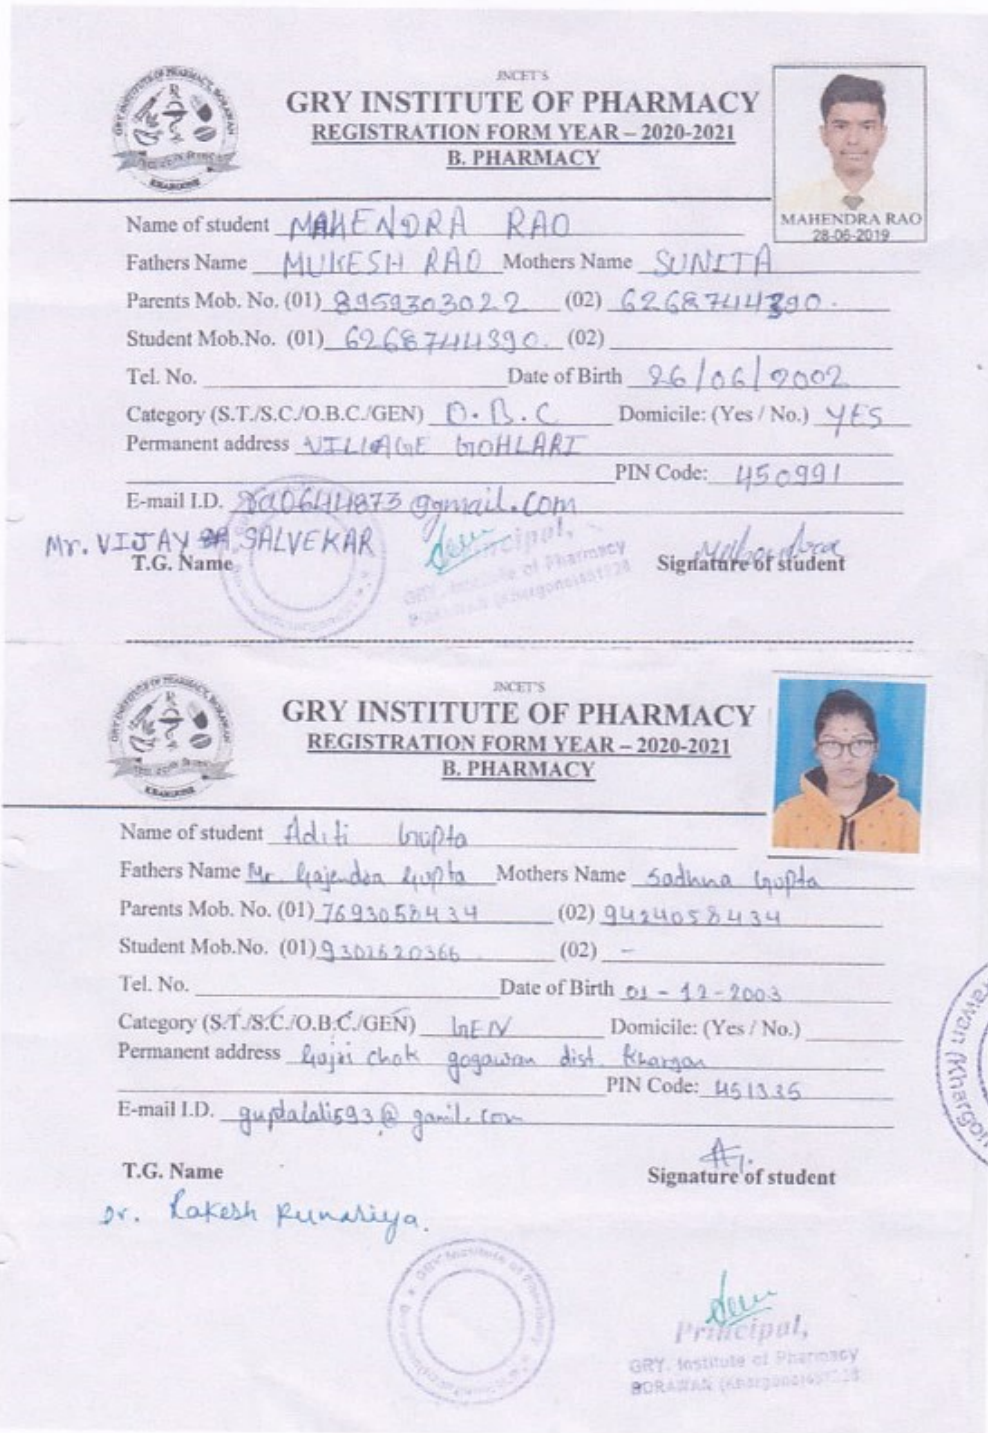 JNCET'S
GRY INSTITUTE OF PHARMACY
REGISTRATION FORM YEAR – 2020-2021
B. PHARMACY
GRY INSTITUTE OF PHARMACY, BORAWAN
KHARGONE
MAHENDRA RAO
28-06-2019
Name of student MAHENDRA RAO
Fathers Name MUKESH RAO Mothers Name SUNITA
Parents Mob. No. (01) 8959303022 (02) 6268744390.
Student Mob.No. (01) 6268744390. (02)
Tel. No. Date of Birth 26/06/2002
Category (S.T./S.C./O.B.C./GEN) O.B.C Domicile: (Yes / No.) YES
Permanent address VILLAGE GOHLARI
PIN Code: 450991
E-mail I.D. rao644873@gmail.com
Mr. VIJAY SALVEKAR
T.G. Name Signature of student
Principal,
GRY. Institute of Pharmacy
BORAWAN (Khargone)451228
JNCET'S
GRY INSTITUTE OF PHARMACY
REGISTRATION FORM YEAR – 2020-2021
B. PHARMACY
GRY INSTITUTE OF PHARMACY, BORAWAN
KHARGONE
Name of student Aditi Gupta
Fathers Name Mr. Gajendra Gupta Mothers Name Sadhna Gupta
Parents Mob. No. (01) 7693058434 (02) 9424058434
Student Mob.No. (01) 9301620366 (02) -
Tel. No. Date of Birth 01-12-2003
Category (S.T./S.C./O.B.C./GEN) GEN Domicile: (Yes / No.)
Permanent address chok gogawan dist. Khargon
PIN Code: 451335
E-mail I.D. guptalali593@gamil.com
T.G. Name Signature of student
Dr. Rakesh
Principal,
GRY. Institute of Pharmacy
BORAWAN (Khargone)451228